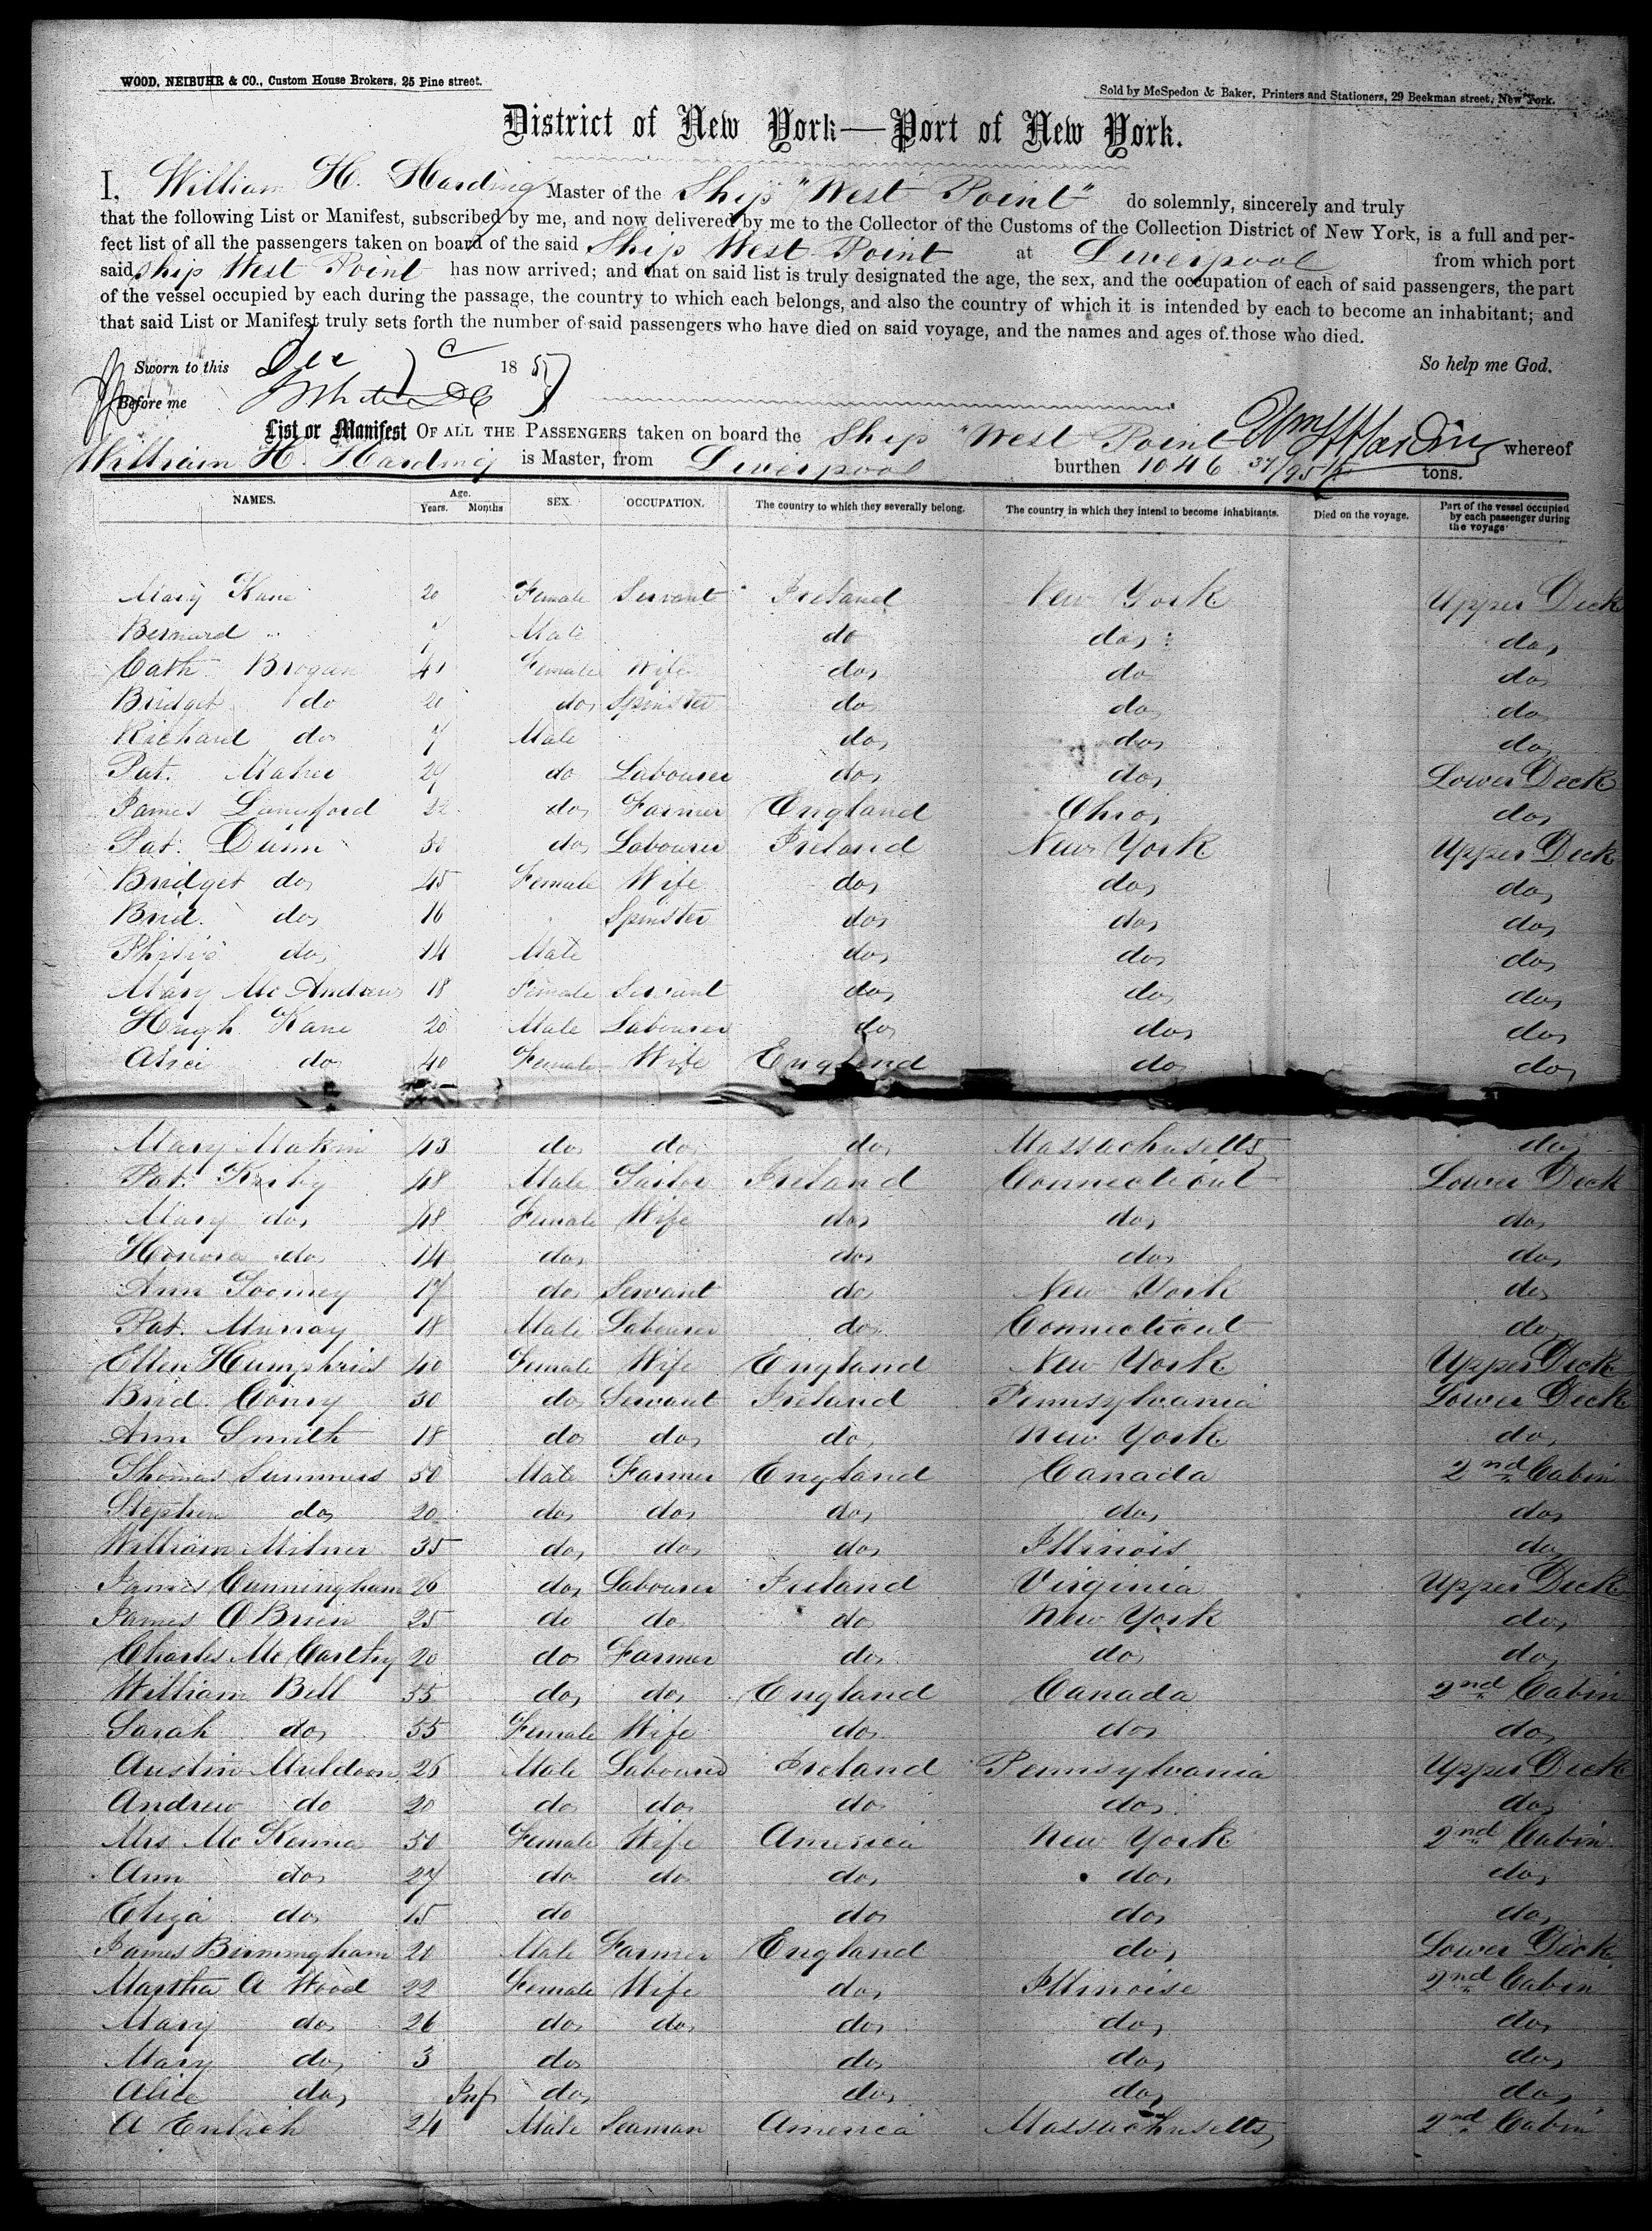 WOOD, NEIBUHR & CO., Custom House Brokers, 25 Pine street.
Sold by McSpedon & Baker, Printers and Stationers, 29 Beekman street, New York.
District of New York—Port of New York.
I, William H. Harding Master of the Ship "West Point" do solemnly, sincerely and truly
that the following List or Manifest, subscribed by me, and now delivered by me to the Collector of the Customs of the Collection District of New York, is a full and per-
fect list of all the passengers taken on board of the said Ship West Point at Liverpool from which port
said Ship West Point has now arrived; and that on said list is truly designated the age, the sex, and the occupation of each of said passengers, the part
of the vessel occupied by each during the passage, the country to which each belongs, and also the country of which it is intended by each to become an inhabitant; and
that said List or Manifest truly sets forth the number of said passengers who have died on said voyage, and the names and ages of those who died.
Sworn to this Dec 1857 So help me God.
Before me
List or Manifest OF ALL THE PASSENGERS taken on board the Ship "West Point Wm H Harding whereof
William H. Harding is Master, from Liverpool burthen 1046 37/95 tons.
NAMES. Age. Years. Months SEX. OCCUPATION. The country to which they severally belong. The country in which they intend to become inhabitants. Died on the voyage. Part of the vessel occupied by each passenger during the voyage
Mary Kane 20 Female Servant Ireland New York Upper Deck
Bernard " 7 Male do do do
Cath. Brogan 41 Female Wife do do do
Bridget do 20 do Spinster do do do
Richard do 7 Male do do do
Pat. Maher 27 do Labourer do do Lower Deck
James Lansford 22 do Farmer England Ohio do
Pat. Dunn 50 do Labourer Ireland New York Upper Deck
Bridget do 45 Female Wife do do do
Brid. do 16 Spinster do do do
Philip do 14 Male do do do
Mary McAndrew 18 Female Servant do do do
Hugh Kane 20 Male Labourer do do do
Alice do 40 Female Wife England do do
Mary Makin 43 do do do Massachusetts do
Pat. Kirby 48 Male Tailor Ireland Connecticut Lower Deck
Mary do 48 Female Wife do do do
Honora do 14 do do do do
Ann Toomey 17 do Servant do New York do
Pat. Murray 18 Male Labourer do Connecticut do
Ellen Humphries 40 Female Wife England New York Upper Deck
Brid. Conry 30 do Servant Ireland Pennsylvania Lower Deck
Ann Smith 18 do do do New York do
Thomas Summers 50 Male Farmer England Canada 2nd Cabin
Stephen do 20 do do do do do
William Milner 35 do do do Illinois do
James Cunningham 26 do Labourer Ireland Virginia Upper Deck
James O Brien 25 do do do New York do
Charles McCarthy 20 do Farmer do do do
William Bell 55 do do England Canada 2nd Cabin
Sarah do 55 Female Wife do do do
Austin Muldoon 26 Male Labourer Ireland Pennsylvania Upper Deck
Andrew do 20 do do do do do
Mrs McKenna 50 Female Wife America New York 2nd Cabin
Ann do 27 do do do do do
Eliza do 15 do do do do
James Birmingham 20 Male Farmer England do Lower Deck
Martha A Wood 22 Female Wife do Illinoise 2nd Cabin
Mary do 26 do do do do do
Mary do 3 do do do do
Alice do Inf do do do do
A 24 Male Seaman America Massachusetts 2nd Cabin